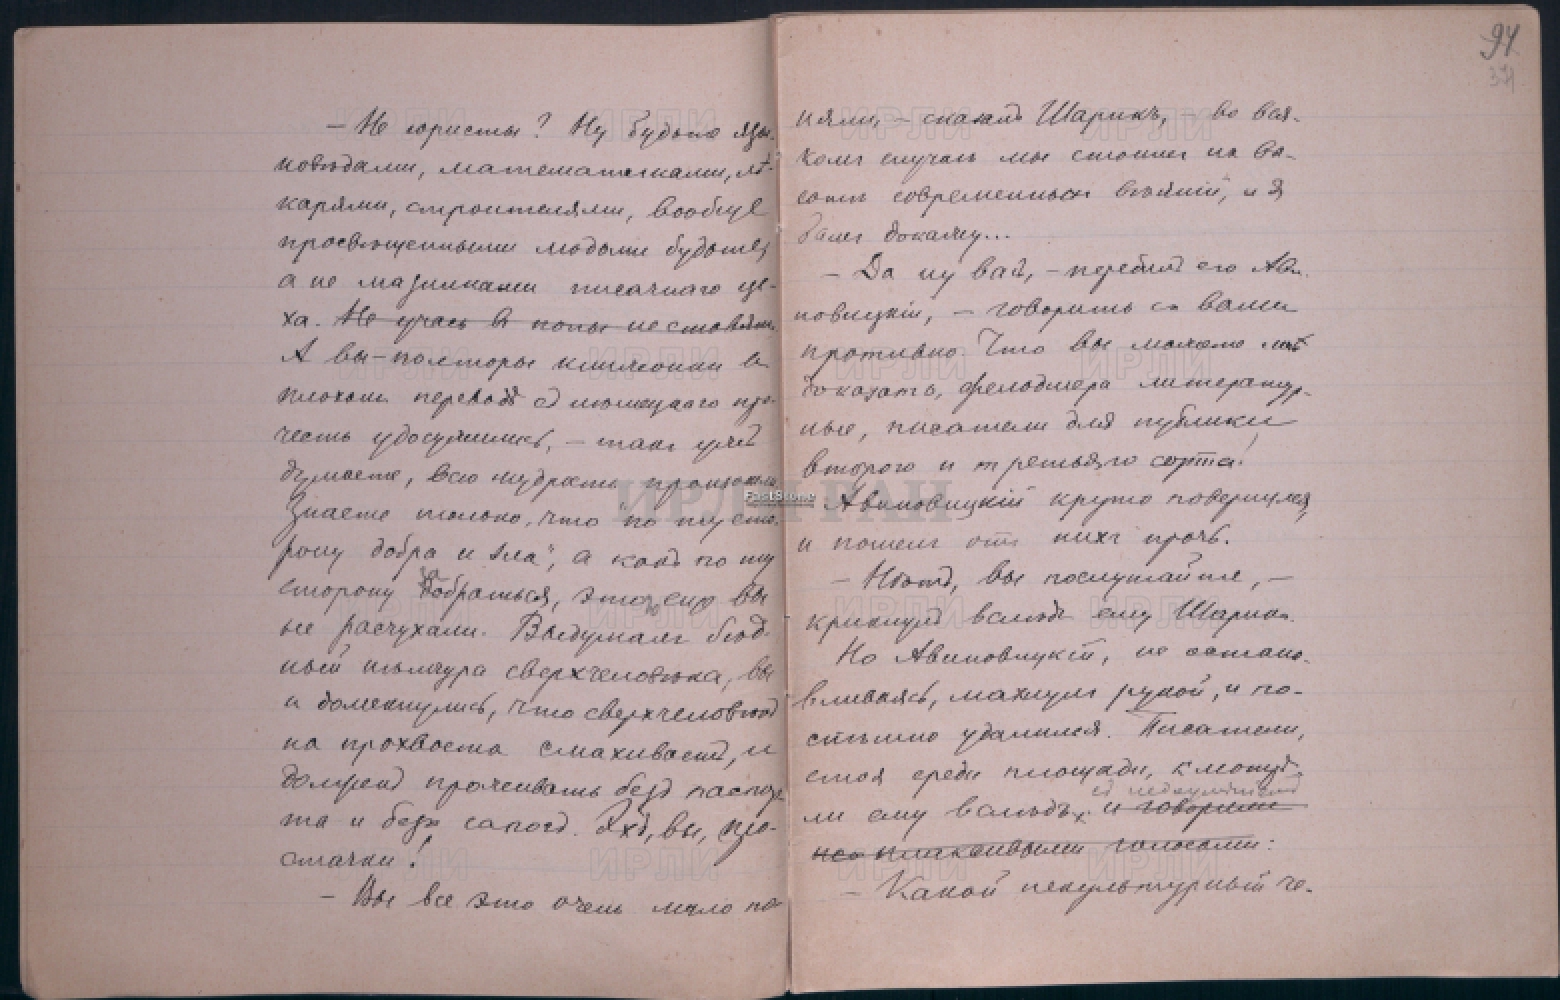 — Не юристы? Ну будьте язы-
коведами, математиками, лѣ-
карями, строителями, вообще
просвѣщенными людьми будьте,
а не мазилками писачнаго це-
ха. Не учась в попы не ставят.
А вы полторы книжонки в
плохом переводѣ съ немецкаго про-
честь удосужились, — так уж
думаете, всю мудрость произошли.
Знаете только, что "по ту сто-
рону добра и зла", а какъ по ту
сторону добраться, этого еще вы
не расчухали. Выдумалъ бѣд-
ный нѣмчура сверхчеловѣка, вы
и домекнулись, что сверхчеловѣкъ
на прохвоста смахиваетъ, и
должен проживать безъ паспор-
та и безъ сапогъ. Эхъ, вы, про-
стачки!
— Вы все это очень мало по-
няли, — сказалъ Шарикъ, — во вся-
комъ случаѣ мы стоимъ на вы-
сотѣ современныхъ вѣяній, и я
вамъ докажу...
— Да ну вас, — перебилъ его Ави-
новицкій, — говорить съ вами
противно. Что вы можете мнѣ
доказать, фельдшера литератур-
ные, писатели для публики
второго и третьяго сорта!
Авиновицкій круто повернулся
и пошелъ отъ нихъ прочь.
— Нѣтъ, вы послушайте, —
крикнулъ вслѣдъ ему Шарикъ.
Но Авиновицкій, не остана-
вливаясь, махнулъ рукой, и по-
спѣшно удалился. Писатели,
стоя среди площади, смотрѣ-
ли ему вслѣдъ, и говорили
съ недоумѣніемъ
плаксивыми голосами:
— Какой некультурный че-
94
ИРЛИ РАН
FastStone
ИРЛИ